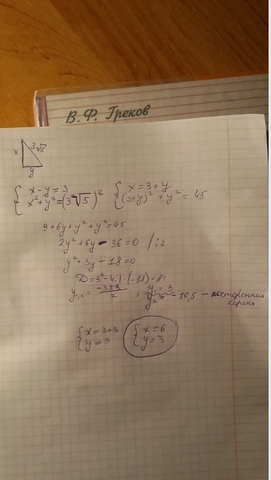 В. Ф. Греков
x 3√5
y
{ x - y = 3
x² + y² = (3√5)²
{ x = 3 + y
(3+y)² + y² = 45
9 + 6y + y² + y² = 45
2y² + 6y - 36 = 0 /:2
y² + 3y - 18 = 0
y₁ = 3
= 10,5 — посторонний
корень
{ x = 3+3
y = 3
{ x = 6
y = 3